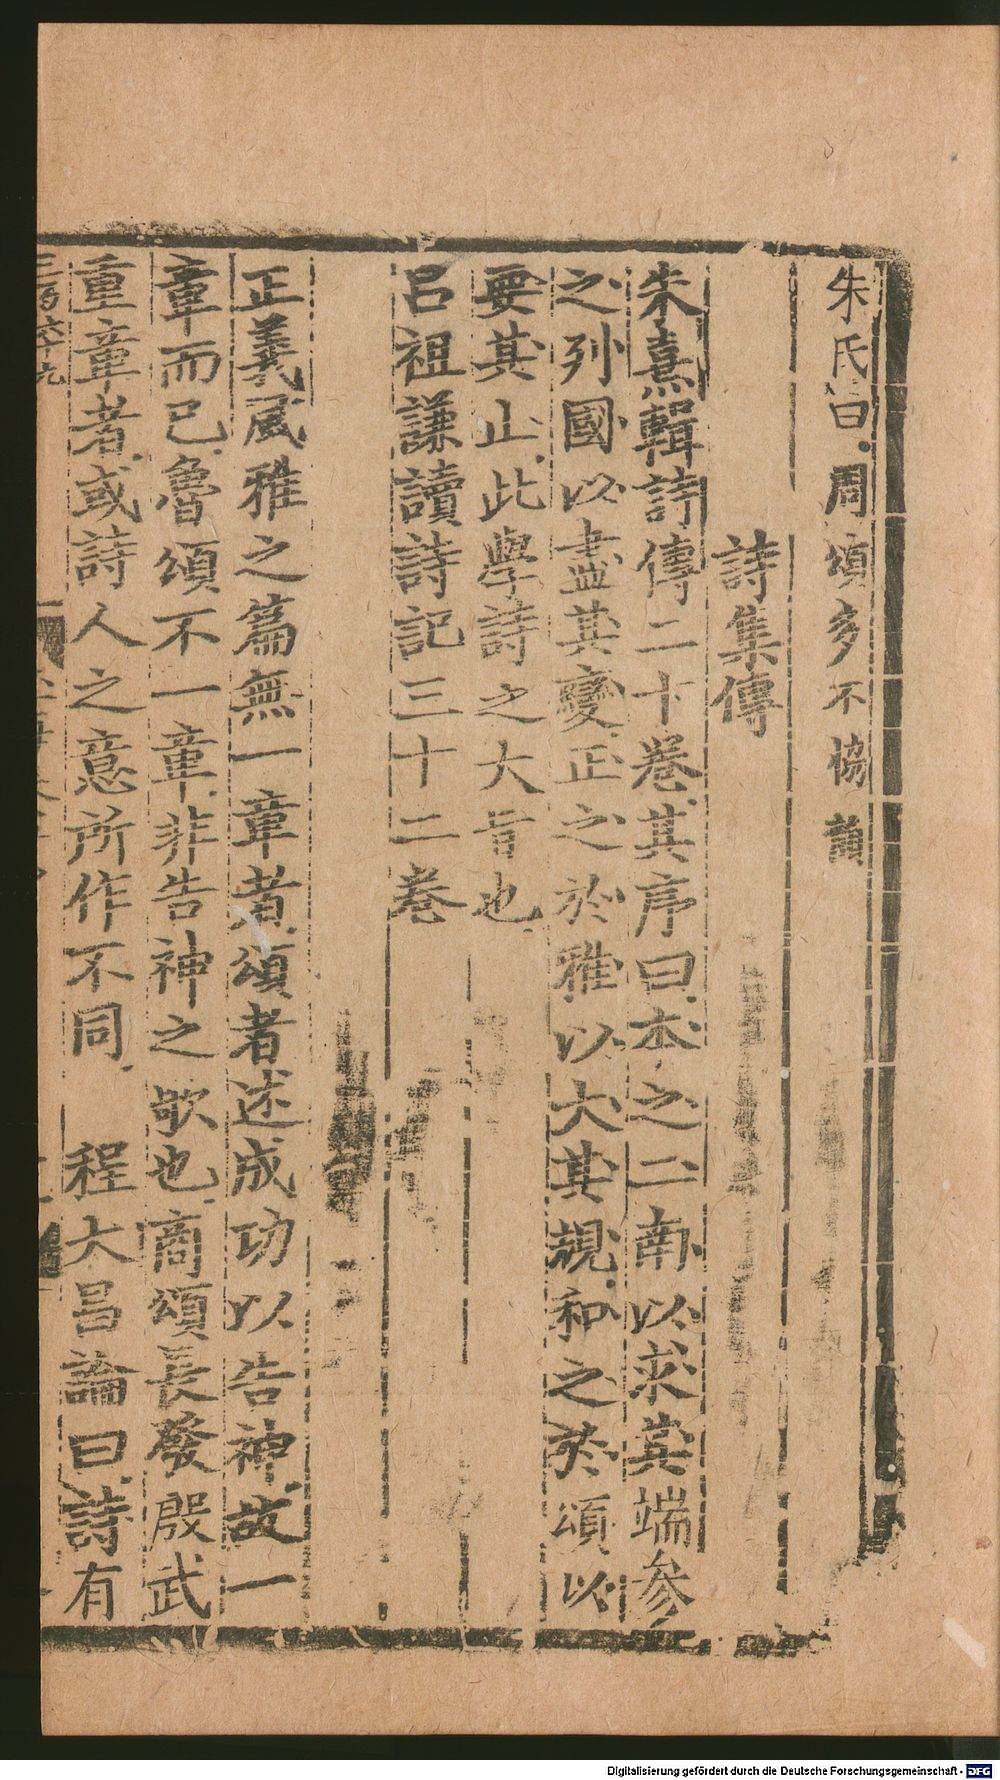 朱氏曰周頌多不協韻
詩集傳
朱熹輯詩傳二十卷其序曰本之二南以求其端參
之列國以盡其變正之於雅以大其規和之於頌以
要其止此學詩之大旨也
呂祖謙讀詩記三十二卷
正義風雅之篇無一章者頌者述成功以告神故一
章而已魯頌不一章非告神之歌也商頌長發殷武
重章者或詩人之意所作不同 程大昌論曰詩有
Digitalisierung gefördert durch die Deutsche Forschungsgemeinschaft - DFG